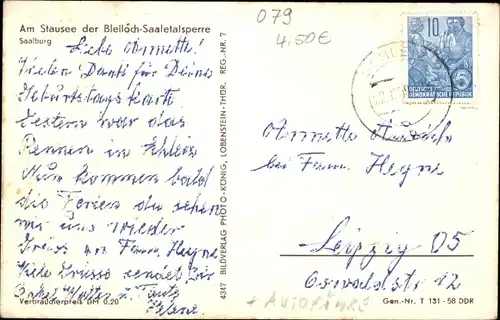 Am Stausee der Bleiloch-Saaletalsperre
Saalburg
Liebe Annette!
Vielen Dank für Deine
Geburtstagskarte
Gestern war das
Rennen in Schleiz
Nun kommen bald
die Ferien da sehen
wir uns wieder
Grüss an Fam. Heyne
Viele Grüsse sendet Dir
Verbraucherpreis DM 0,20
4347 BILDVERLAG PHOTO-KÖNIG, LOBENSTEIN-THÜR. REG.-NR. 7
079
4.50€
10
DEUTSCHE
DEMOKRATISCHE REPUBLIK
Annette
bei Fam. Heyne
Leipzig O5
Oswaldstr 12
+ AUTOFÄHRE
Gen.-Nr. T 131 - 58 DDR